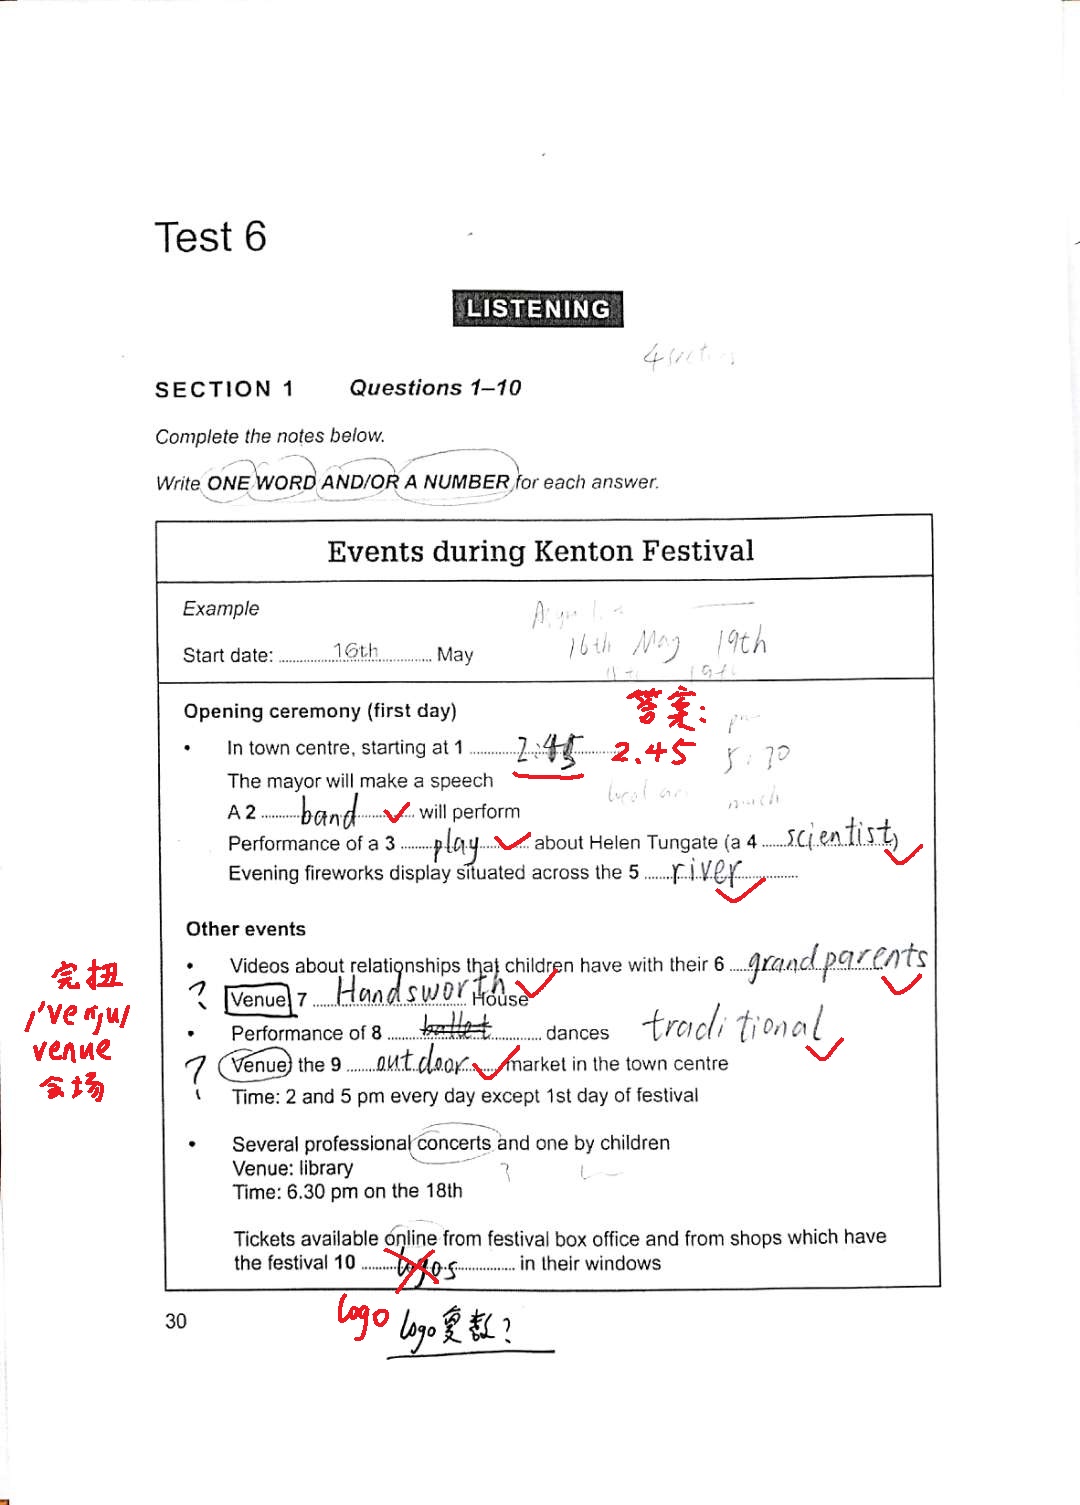 Test 6
LISTENING
SECTION 1 Questions 1–10
Complete the notes below.
Write ONE WORD AND/OR A NUMBER for each answer.
Events during Kenton Festival
Example
Start date: 16th May
16th May 19th
Opening ceremony (first day)
答案:
• In town centre, starting at 1 2:45 2.45
The mayor will make a speech
A 2 band will perform
Performance of a 3 play about Helen Tungate (a 4 scientist)
Evening fireworks display situated across the 5 river
Other events
• Videos about relationships that children have with their 6 grandparents
? Venue 7 Handsworth House
• Performance of 8 ballet dances traditional
? Venue the 9 outdoor market in the town centre
Time: 2 and 5 pm every day except 1st day of festival
venue
会场
• Several professional concerts and one by children
Venue: library
Time: 6.30 pm on the 18th
Tickets available online from festival box office and from shops which have
the festival 10 logos in their windows
logo
logo复数?
30